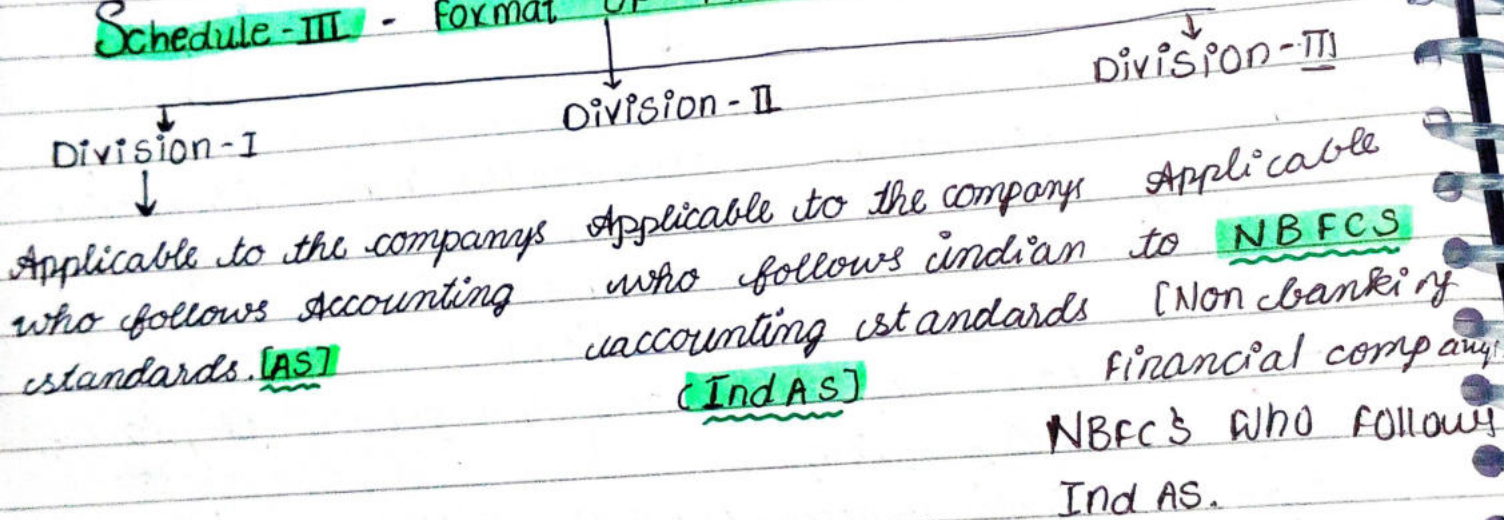 Schedule-III - Format OF
Division-I
Division-II
Division-III
Applicable to the companys
who follows Accounting
standards.[AS]
Applicable to the companys
who follows indian
accounting standards
(Ind AS]
Applicable
to NBFCS
[Non banking
Financial company
NBFC'S who Follows
Ind AS.